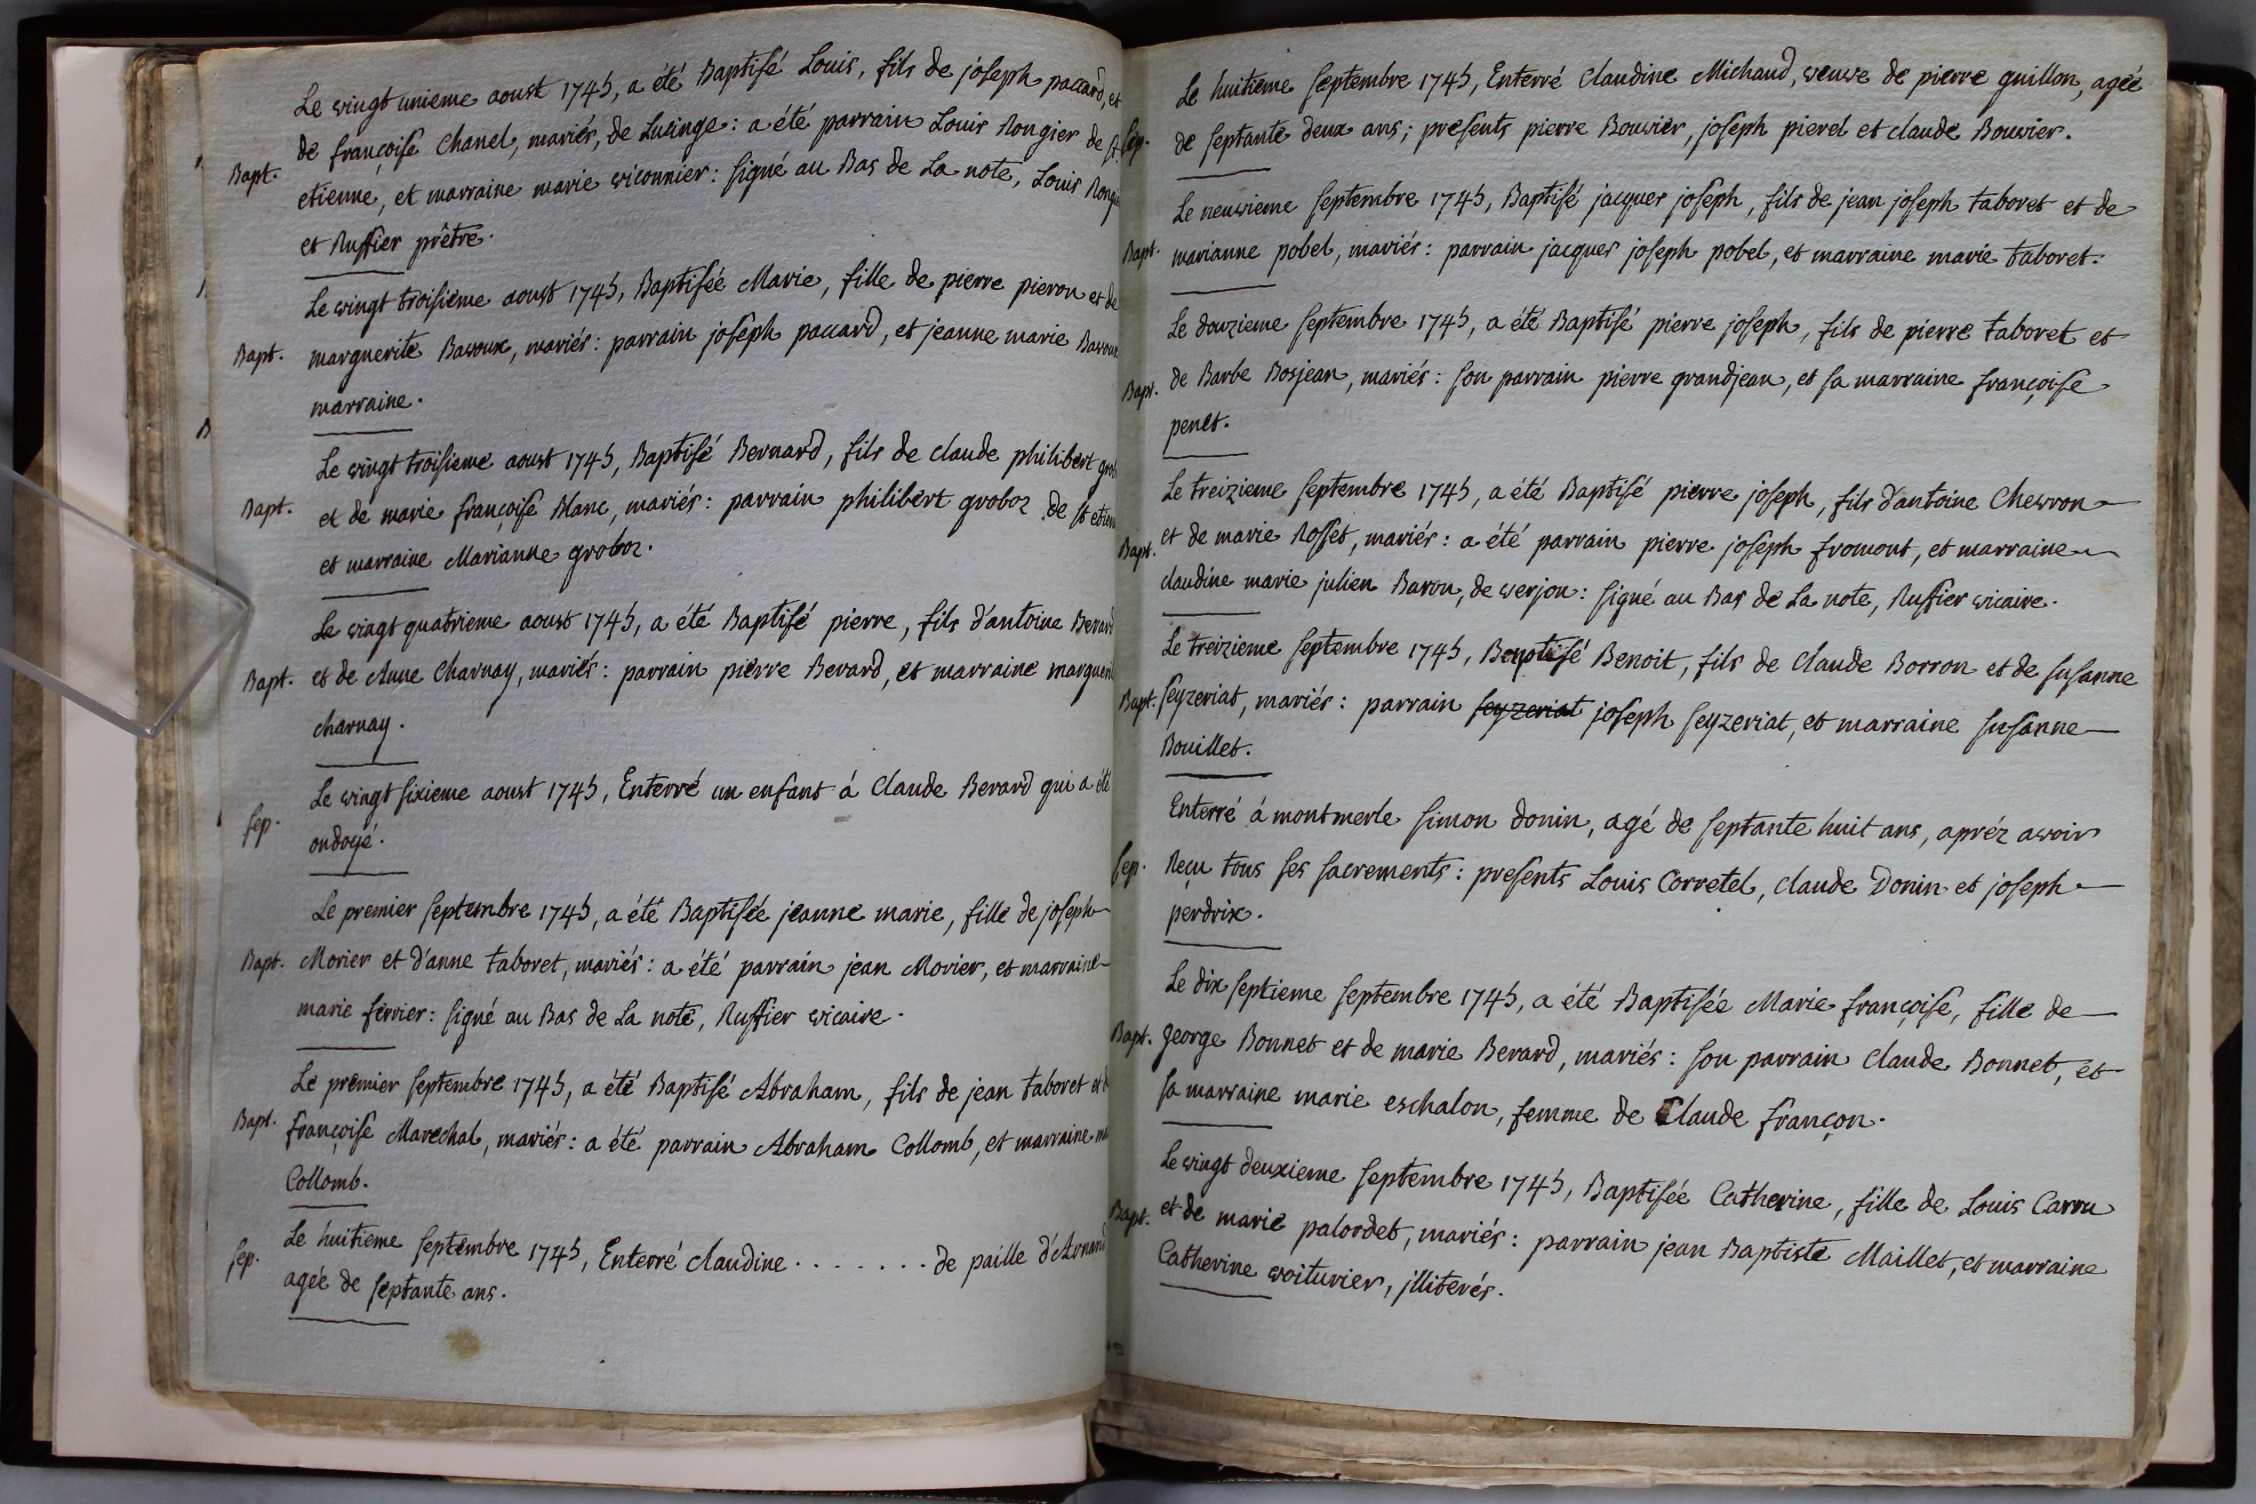 Le vingt unieme aoust 1745, a été Baptisé Louis, fils de joseph paccard, et
de françoise Chanel, mariés, de Lucinge: a été parrain Louis Rongier de st.
Bapt. etienne, et marraine marie viconnier: signé au Bas de La note, Louis
et Ruffier prêtre.
Le vingt troisieme aoust 1745, Baptisée Marie, fille de pierre pieron et de
Bapt. marguerite Bavoux, mariés: parrain joseph paccard, et jeanne marie Bavoux
marraine.
Le vingt troisieme aoust 1745, Baptisé Bernard, fils de claude philibert
Bapt. et de marie françoise Blanc, mariés: parrain philibert groboz de st
et marraine Marianne groboz.
Le vingt quatrieme aoust 1745, a été Baptisé pierre, fils d'antoine Berard
Bapt. et de Anne Charnay, mariés: parrain pierre Berard, et marraine
charnay.
Le vingt sixieme aoust 1745, Enterré un enfant á Claude Berard qui a été
sep. ondoyé.
Le premier septembre 1745, a été Baptisée jeanne marie, fille de joseph
Bapt. Morier et d'anne taboret, mariés: a été parrain jean Morier, et marraine
marie ferrier: signé au Bas de La note, Ruffier vicaire.
Le premier septembre 1745, a été Baptisé Abraham, fils de jean taboret et
Bapt. françoise Marechal, mariés: a été parrain Abraham Collomb, et marraine
Collomb.
Le huitieme septembre 1745, Enterré claudine . . . . . . . de paille
sep. agée de septante ans.
Le huitieme septembre 1745, Enterré Claudine Michaud, veuve de pierre guillon, agée
sep. de septante deux ans; presents pierre Bouvier, joseph pierel et claude Bouvier.
Le neuvieme septembre 1745, Baptisé jacques joseph, fils de jean joseph taboret et de
Bapt. marianne pobel, mariés: parrain jacques joseph pobel, et marraine marie taboret.
Le douzieme septembre 1745, a été Baptisé pierre joseph, fils de pierre taboret et
Bapt. de Barbe Bosjean, mariés: son parrain pierre grandjean, et sa marraine françoise
penet.
Le treizieme septembre 1745, a été Baptisé pierre joseph, fils d'antoine Chevron
Bapt. et de marie Rosset, mariés: a été parrain pierre joseph fromont, et marraine
claudine marie julien Baron, de verjon: signé au Bas de La note, Ruffier vicaire.
Le treizieme septembre 1745, Baptisé Benoit, fils de Claude Borron et de susanne
Bapt. seyzeriat, mariés: parrain seyzeriat joseph seyzeriat, et marraine susanne
Bouillet.
Enterré á montmerle simon donin, agé de septante huit ans, apréz avoir
sep. Reçu tous ses sacrements: presents Louis Corretel, claude Donin et joseph
perdrix.
Le dix septieme septembre 1745, a été Baptisée Marie françoise, fille de
Bapt. george Bonnet et de marie Berard, mariés: son parrain Claude Bonnet, et
sa marraine marie eschalon, femme de Claude françon.
Le vingt deuxieme septembre 1745, Baptisée Catherine, fille de Louis Carru
Bapt. et de marie palordet, mariés: parrain jean Baptiste Maillet, et marraine
Catherine voiturier, jlliterés.